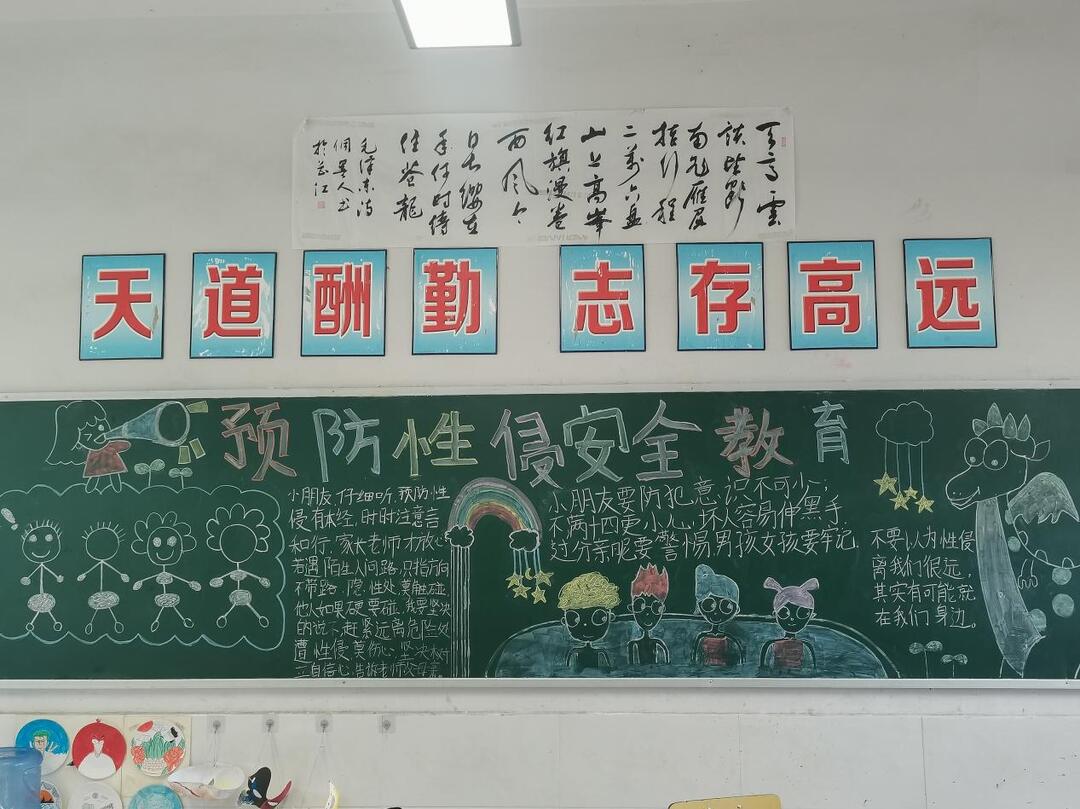 天高雲
淡望斷
南飛雁屈
指行程
二萬六盤
山上高峰
红旗漫卷
西風今
日長纓在
手何时缚
住苍龍
毛泽東诗
天道酬勤 志存高远
预防性侵安全教育
小朋友仔细听,预防性
侵有本经,时时注意言
和行,家长老师才放心
若遇陌生人问路,只指方向
不带路,隐性处莫触碰
他人如果硬要碰,我要坚决
的说不赶紧远离危险处
遭性侵莫伤心,坚决树
立自信心,告诉老师或母亲。
小朋友要防犯意识不可少;
不两十四要小心,坏人容易伸黑手
过分亲昵要警惕,男孩女孩要牢记.
不要以为性侵
离我们很远,
其实有可能就
在我们身边。